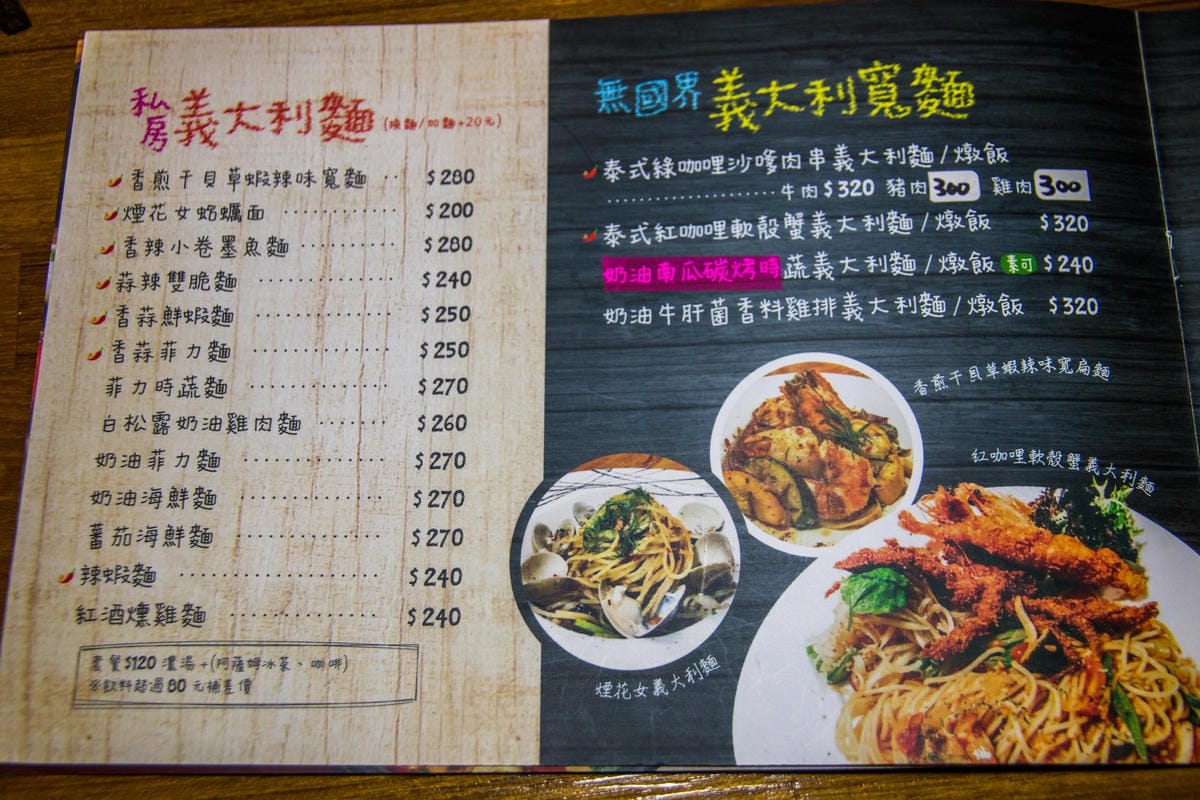 私房 義大利麵 (換麵/加麵+20元)
香煎干貝草蝦辣味寬麵 ‥ $280
煙花女蛤蠣面 ············ $200
香辣小卷墨魚麵 ·········· $280
蒜辣雙脆麵 ·············· $240
香蒜鮮蝦麵 ·············· $250
香蒜菲力麵 ·············· $250
菲力時蔬麵 ·············· $270
白松露奶油雞肉麵 ······· $260
奶油菲力麵 ·············· $270
奶油海鮮麵 ·············· $270
蕃茄海鮮麵 ·············· $270
辣蝦麵 ···················· $240
紅酒燻雞麵 ·············· $240
套餐 $120 濃湯+(阿薩姆冰茶、咖啡)
※飲料超過 80 元補差價
無國界 義大利寬麵
泰式綠咖哩沙嗲肉串義大利麵/燉飯
·················牛肉$320 豬肉300 雞肉300
泰式紅咖哩軟殼蟹義大利麵/燉飯 $320
奶油南瓜碳烤時蔬義大利麵/燉飯 素可 $240
奶油牛肝菌香料雞排義大利麵/燉飯 $320
香煎干貝草蝦辣味寬扁麵
紅咖哩軟殼蟹義大利麵
煙花女義大利麵